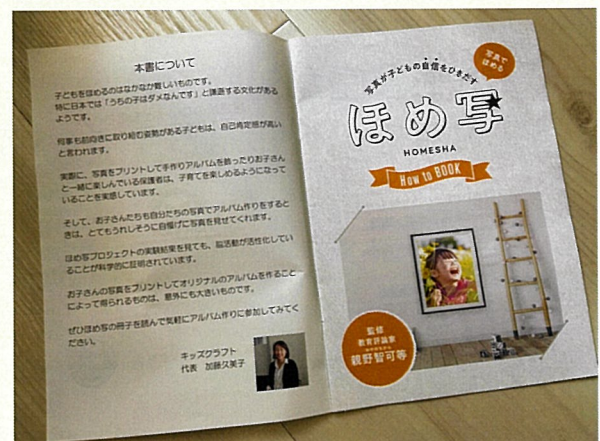 本書について
子どもをほめるのはなかなか難しいものです。
特に日本では「うちの子はダメなんです」と謙遜する文化がある
ようです。
何事も前向きに取り組む姿勢がある子どもは、自己肯定感が高い
と言われます。
実際に、写真をプリントして手作りアルバムを飾ったりお子さん
と一緒に楽しんでいる保護者は、子育てを楽しめるようになって
いることを実感しています。
そして、お子さんたちも自分たちの写真でアルバム作りをすると
きは、とてもうれしそうに自慢げに写真を見せてくれます。
ほめ写プロジェクトの実験結果を見ても、脳活動が活性化してい
ることが科学的に証明されています。
お子さんの写真をプリントしてオリジナルのアルバムを作ること
によって得られるものは、意外にも大きいものです。
ぜひほめ写の冊子を読んで気軽にアルバム作りに参加してみてく
ださい。
キッズクラフト
代表 加藤久美子
写真で
ほめる
写真が子どもの自信をひきだす
ほめ写
HOMESHA
How to BOOK
監修
教育評論家
親野智可等